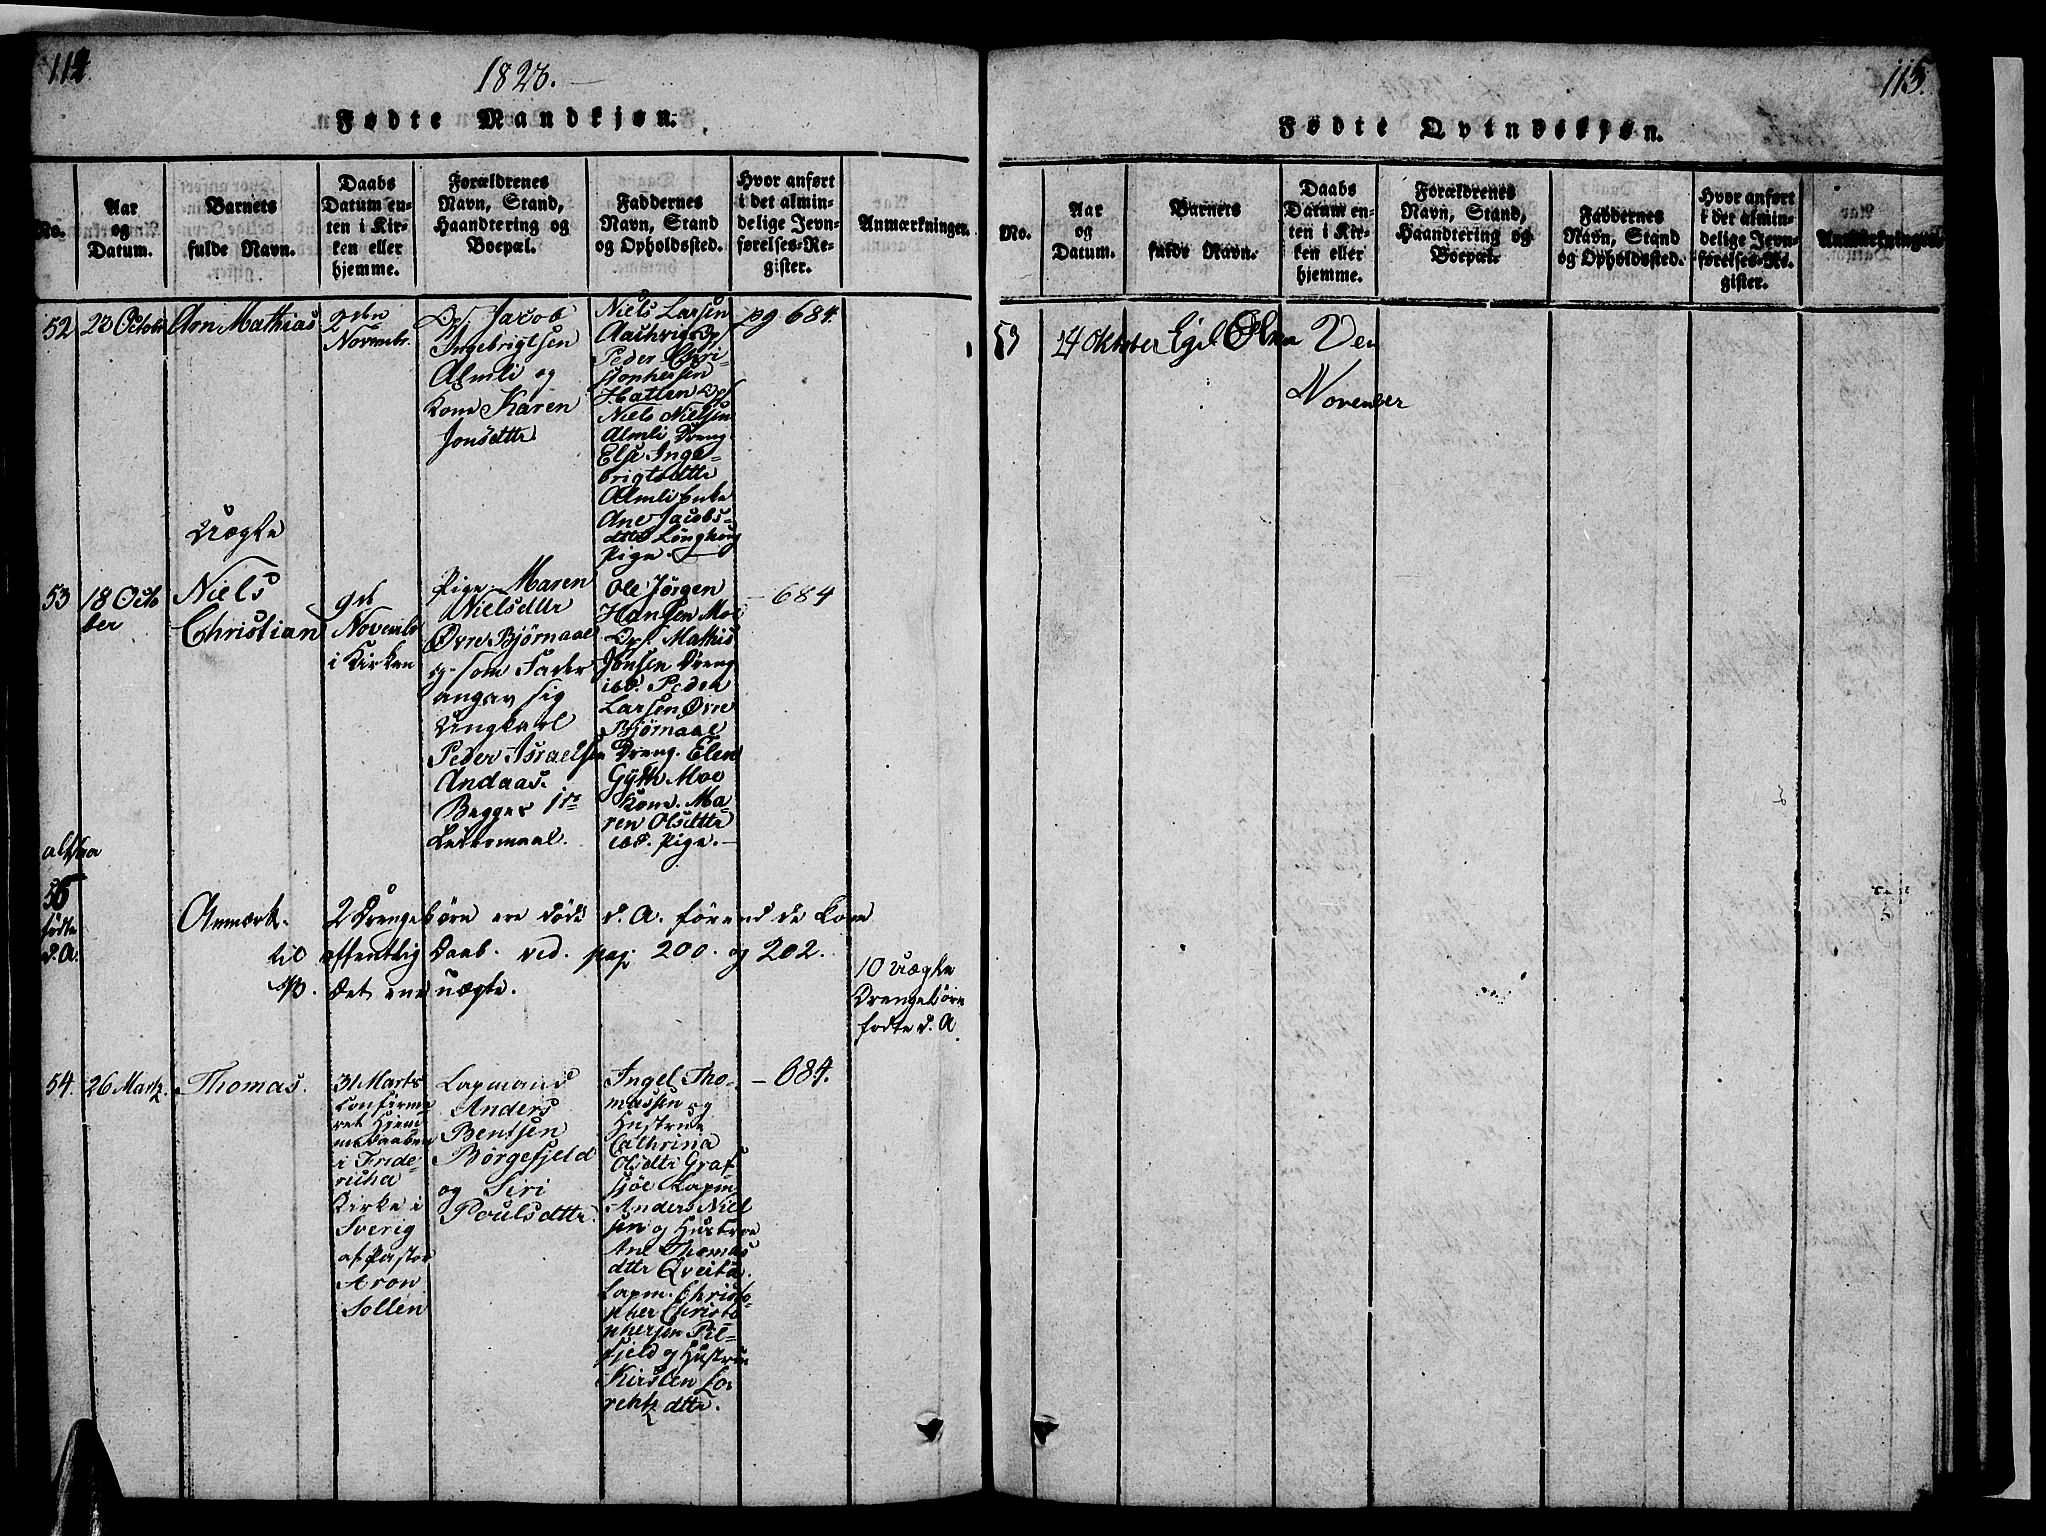 114
1823.
Fødte Mandkjøn.
No.
Aar
og
Datum.
Barnets
fulde Navn.
Daabs
Datum en-
ten i Kir-
ken eller
hjemme.
Forældrenes
Navn, Stand,
Haandtering og
Boepæl.
Faddernes
Navn, Stand
og Opholdssted.
Hvor anført
i det almin-
delige Jevn-
førelses-Re-
gister.
Anmærkninger.
52
23 Octobr
Aron Mathias
2den
Novembr.
Jacob
Ingebrigtsen
Almli og
Kone Karen
Jonsdttr
Niels Larsen
Peder Chri-
stophersen
Hatlen
Niels Nielsen
Almli Dreng
Else Inge-
brigtsdttr
Almli Enke
Ane Jacobs-
dttr
Pige.
pg 684.
Uægte
53
18 Octo
ber
Niels
Christian
9de
Novembr
i Kirken
Pige Maren
Nielsdttr
Øvre Bjørnaae
og som Fader
angav sig
Ungkarl
Peder Israelsen
Andaas.
Begges 1ste
Leiermaal.
Ole Jørgen
Hansen Moe
Mathis
Jonsen Dreng
ibd. Peder
Larsen Øvre
Bjørnaae
Dreng. Elen
Gyth Moe
Kone. Ma-
ren Olsdttr
ibd. Pige.
- 684
altsaa
56
fødte
d. A.
Anmærk. 2 Drengebørn ere døde d. A. førend de kom
til offentlig Daab. vid. pag 200. og 202.
Det ene uægte.
10 uægte
Drengebørn
fødte d. A.
54.
26 Martz.
Thomas.
31 Marts
Confirme
ret Hjem
medaaben
i Fride-
richa
Kirke i
Sverig
af Pastor
Aron
Sollen
Lapmand
Anders
Bentsen
Børgefjeld
og Siri
Poulsdttr.
Ingel Tho-
massen og
Hustrue
Cathrina
Olsdttr Graf
sjøe Lapm
Anders Niel
sen og Hustrue
Ane Thomas
dttr Qveita.
Lapm. Christo-
pher Christo
phersen Pil-
fjeld og Hustrue
Kirsten Lo
rentz dttr.
- 684.
115.
Fødte Qvindekjøn.
No.
Aar
og
Datum.
Barnets
fulde Navn.
Daabs
Datum en-
ten i Kir-
ken eller
hjemme.
Forældrenes
Navn, Stand,
Haandtering og
Boepæl.
Faddernes
Navn, Stand
og Opholdssted.
Hvor anført
i det almin-
delige Jevn-
førelses-Re-
gister.
Anmærkninger.
53
24 Oktober
November